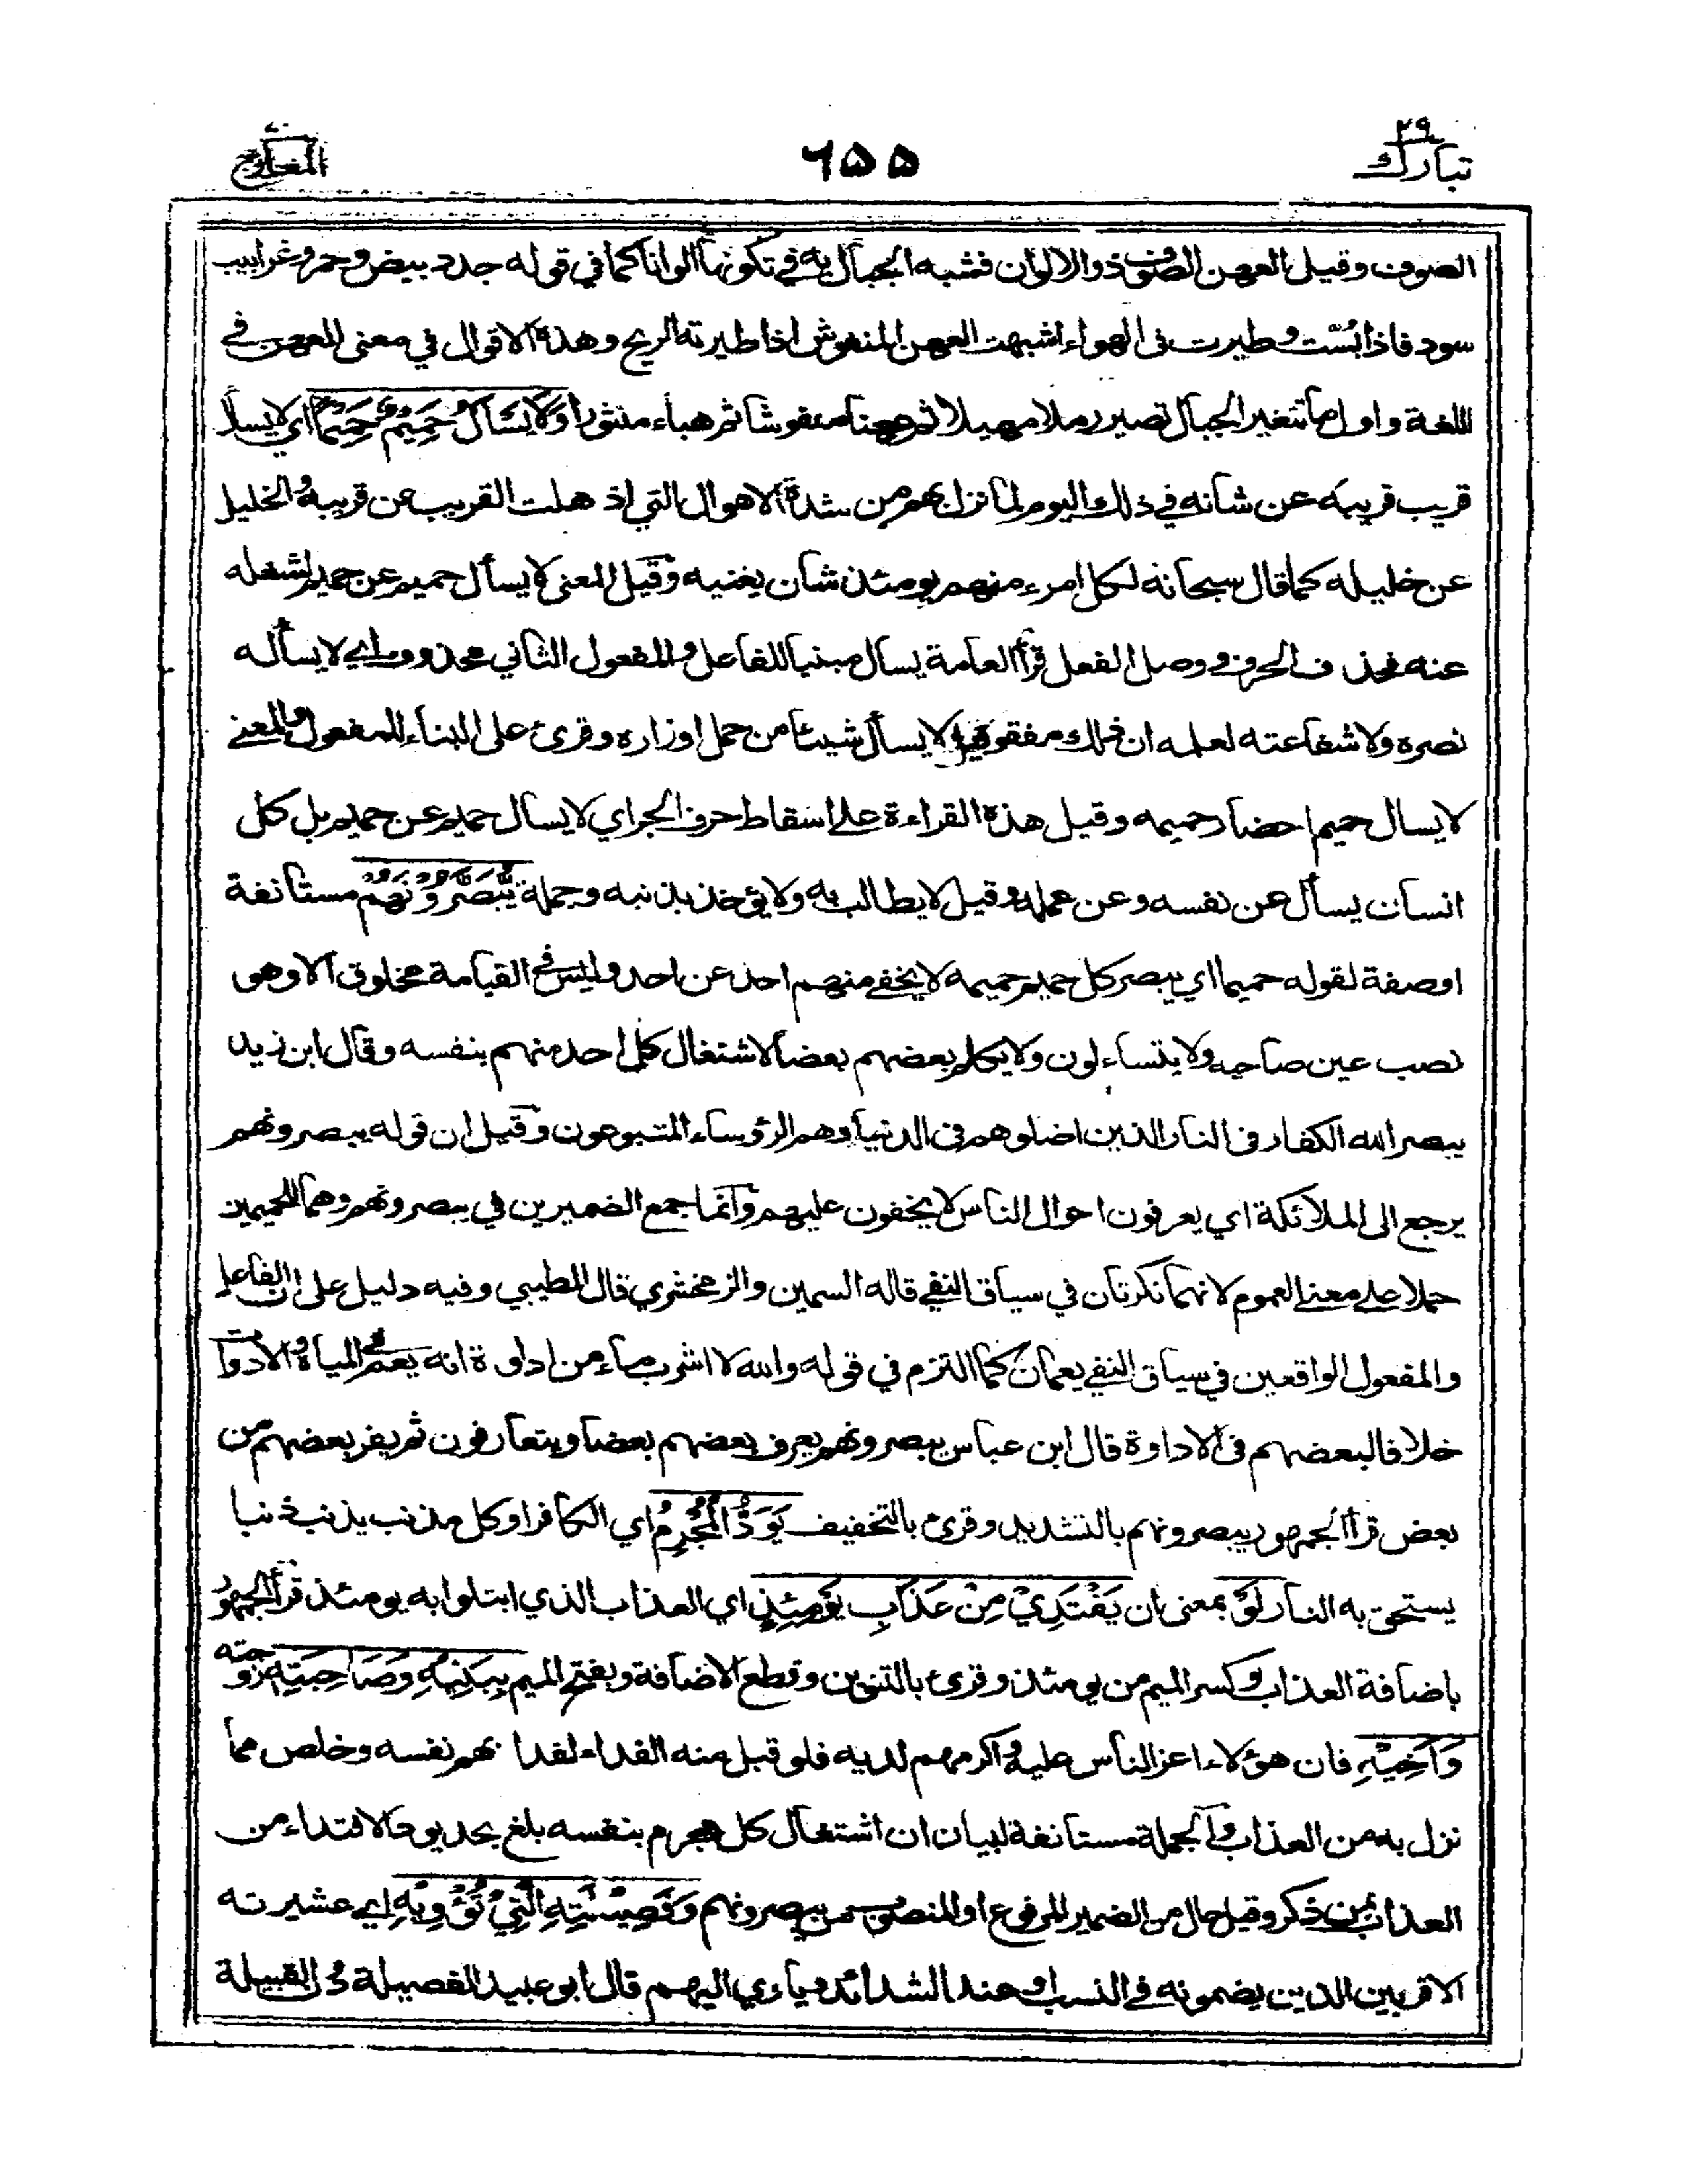 تبارك ٢٩
٦٥٥
المعارج ٧٠
الصوف وقيل العهن الصوف ذو الالوان فشبه الجبال به في تكونها الوانا كما في قوله جدد بيض وحمر وغرابيب
سود فاذا بُسّت وطيرت في الهواء اشبهت العهن المنفوش اذا طيرته الريح وهذه الاقوال في معنى العهن في
اللغة واول ما تتغير الجبال تصير رملا مهيلا ثم عهنا منفوشا ثم هباء منثورا وَلَا يَسْأَلُ حَمِيْمٌ حَمِيْمًا اي لا يسأل
قريب قريبه عن شانه في ذلك اليوم لما نزل بهم من شدة الاهوال التي اذهلت القريب عن قريبه والخليل
عن خليله كما قال سبحانه لكل امرء منهم يومئذ شان يغنيه وقيل المعنى لا يسأل حميم عن حميم لشغله
عنه فحذف الحرف ووصل الفعل قرأ العامة يسأل مبنيا للفاعل والمفعول الثاني محذوف اي لا يسأله
نصره ولا شفاعته لعلمه ان ذلك مفقود وقيل لا يسأل شيئا من حمل اوزاره وقرئ على البناء للمفعول والمعنى
لا يسال حميم احضار حميمه وقيل هذه القراءة على اسقاط حرف الجر اي لا يسال حميم عن حميم بل كل
انسان يسأل عن نفسه وعن عمله وقيل لا يطالب به ولا يؤخذ بذنبه وجملة يُّبَصَّرُوْنَهُمْ مستانفة
او صفة لقوله حميما اي يبصر كل حميم حميمه لا يخفى منهم احد عن احد وليس في القيامة مخلوق الا وهو
نصب عين صاحبه ولا يتساءلون ولا يكلم بعضهم بعضا لاشتغال كل احد منهم بنفسه وقال ابن زيد
يبصر الله الكفار في النار الذين اضلوهم في الدنيا وهم الرؤساء المتبوعون وقيل ان قوله يبصرونهم
يرجع الى الملائكة اي يعرفون احوال الناس لا يخفون عليهم وانما جمع الضميرين في يبصرونهم وهما للحميمين
حملا على معنى العموم لانهما نكرتان في سياق النفي قاله السمين والزمخشري قال الطيبي وفيه دليل على ان الفاعل
والمفعول الواقعين في سياق النفي يعمان كما التزم في قوله والله لا اشرب ماء من اداوة انه يعم المياه والادوات
خلافا لبعضهم في الاداوة قال ابن عباس يبصرونهم يعرف بعضهم بعضا ويتعارفون ثم يفر بعضهم من
بعض قرأ الجمهور يبصرونهم بالتشديد وقرئ بالتخفيف يَوَدُّ الْمُجْرِمُ اي الكافر او كل مذنب يذنب ذنبا
يستحق به النار لَوْ بمعنى ان يَفْتَدِيْ مِنْ عَذَابِ يَوْمِئِذٍ اي العذاب الذي ابتلوا به يومئذ قرأ الجمهور
باضافة العذاب وكسر الميم من يومئذ وقرئ بالتنوين وقطع الاضافة وبفتح الميم بِبَنِيْهِ وَصَاحِبَتِهٖ زوجته
وَاَخِيْهِ فان هؤلاء اعز الناس عليه واكرمهم لديه فلو قبل منه الفداء لفدا بهم نفسه وخلص مما
نزل به من العذاب والجملة مستانفة لبيان ان اشتغال كل مجرم بنفسه بلغ بحد يود الافتداء من
العذاب بمن ذكر وقيل حال من الضمير المرفوع او المنصوب من يبصرونهم وَفَصِيْلَتِهِ الَّتِيْ تُؤْوِيْهِ اي عشيرته
الاقربين الذين يضمونه في النسب او عند الشدائد وياوي اليهم قال ابو عبيد الفصيلة دون القبيلة